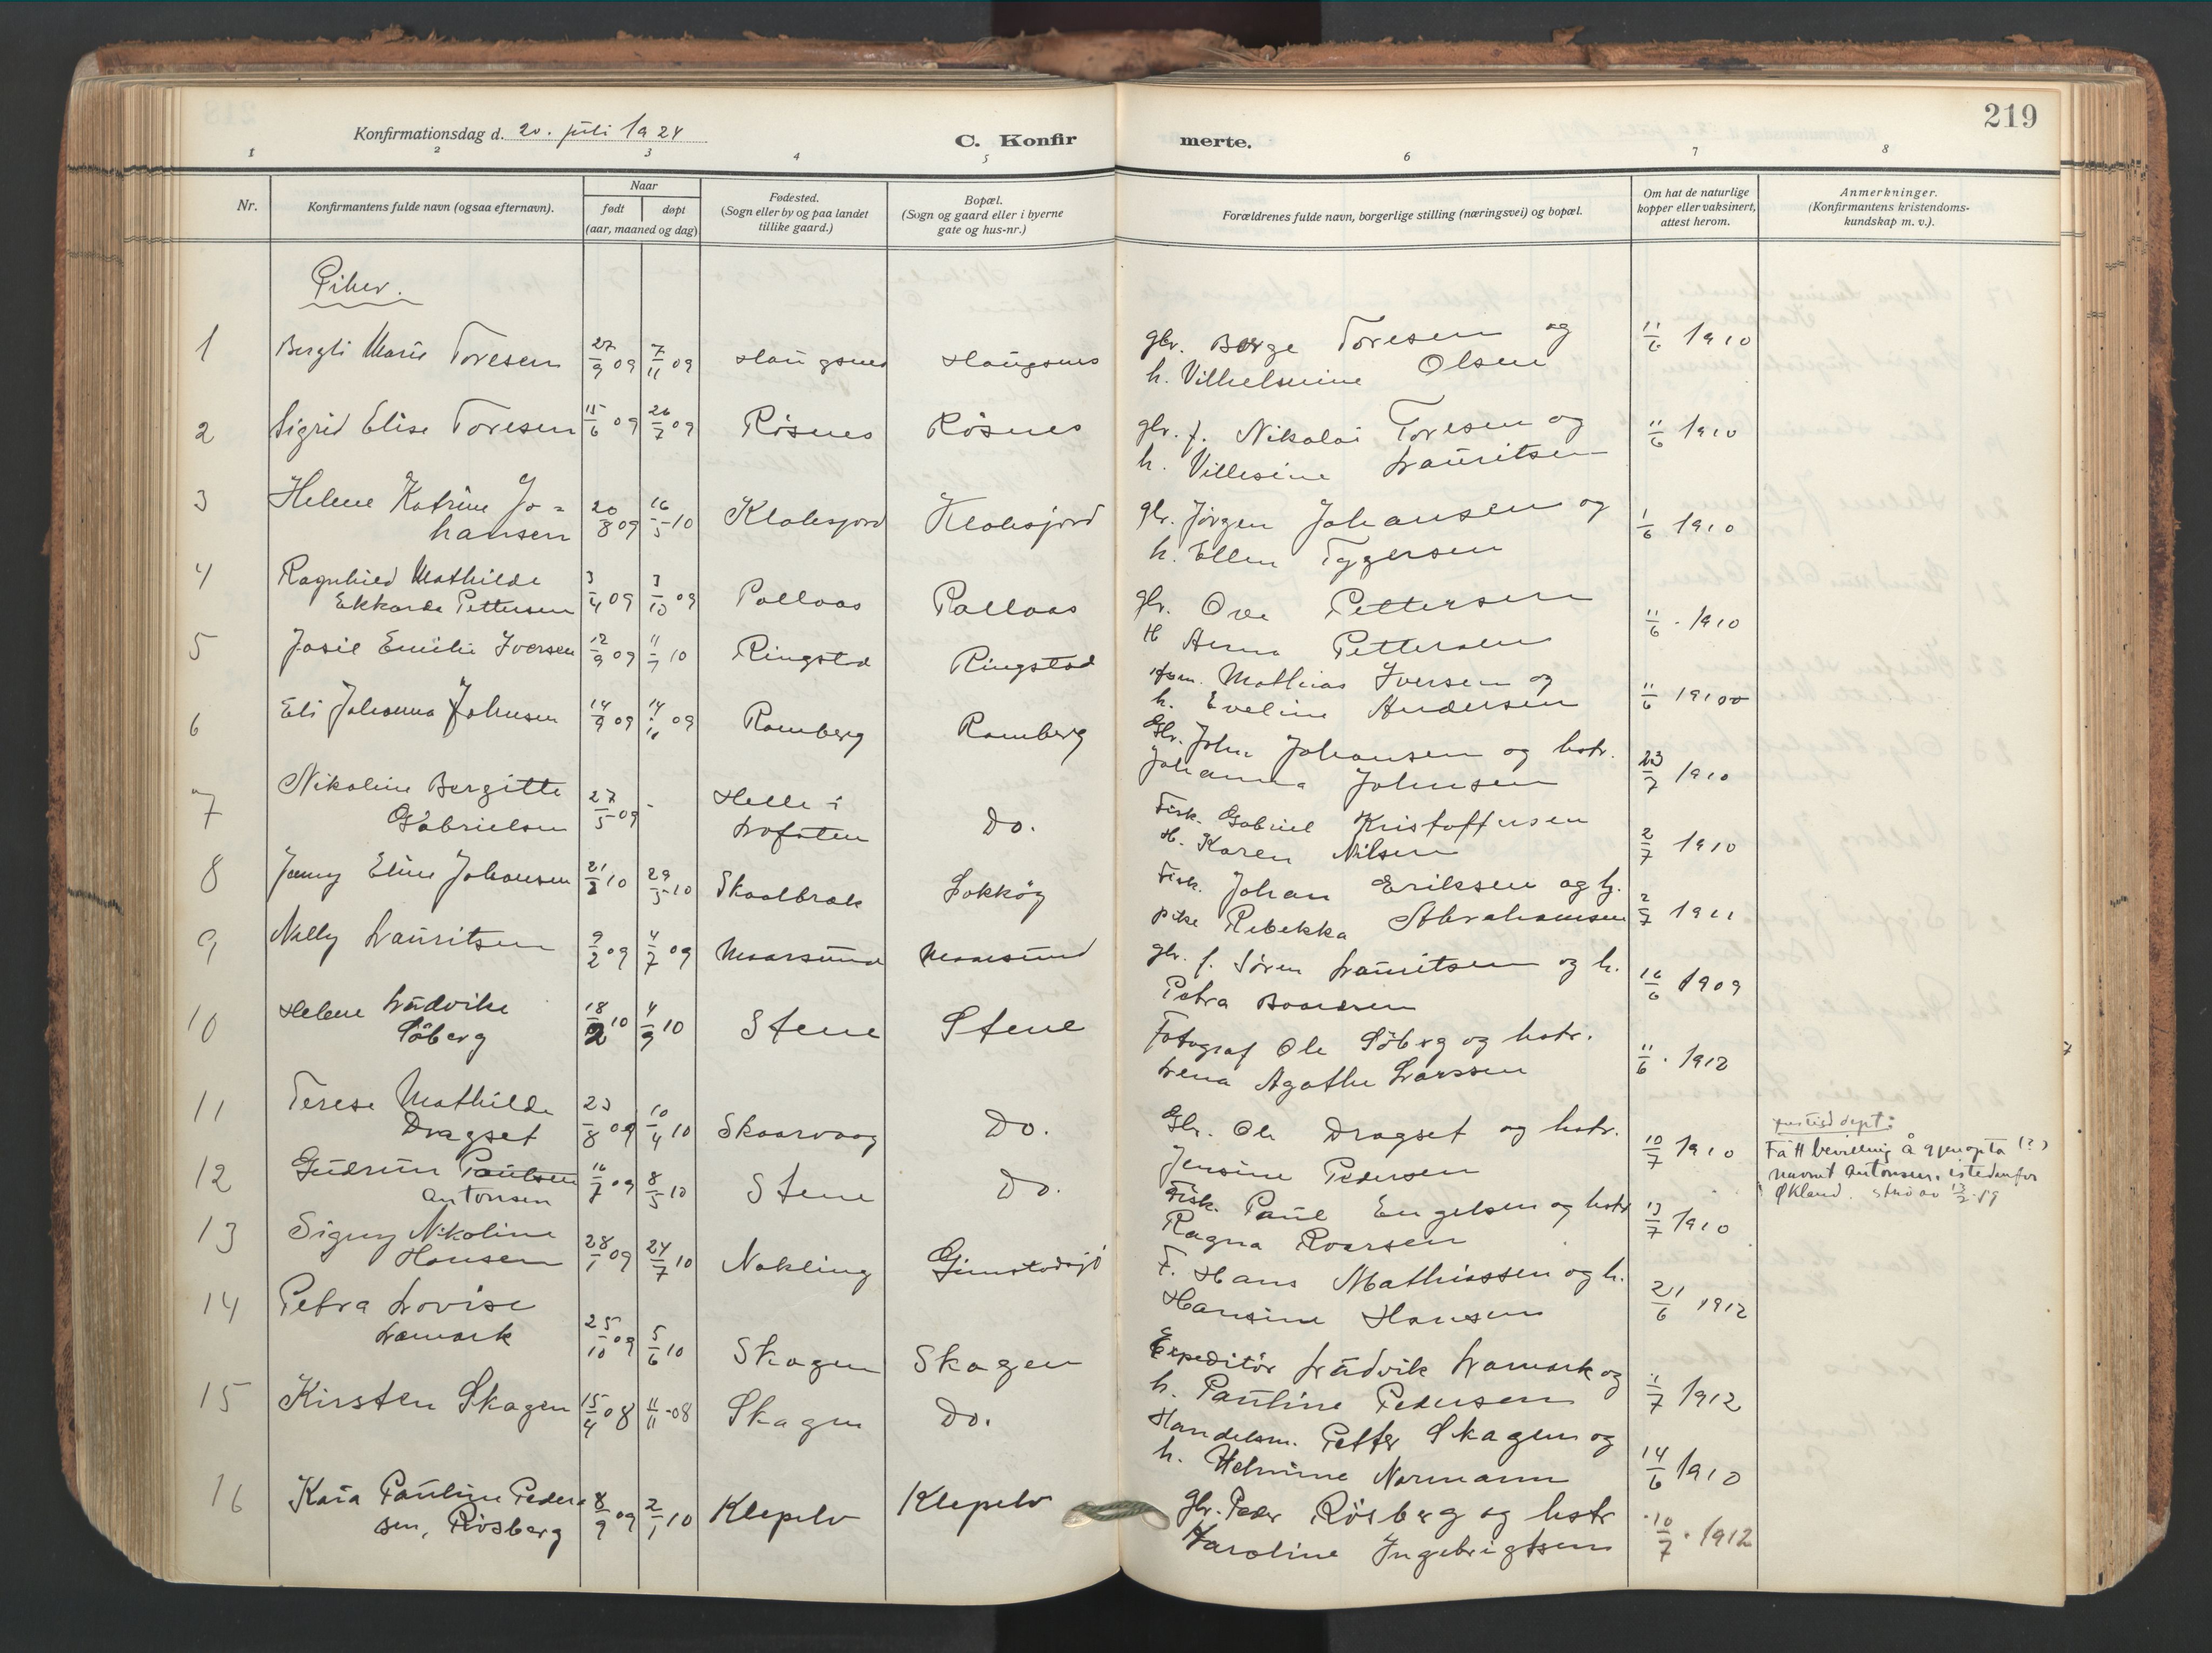 219
Konfirmationsdag d. 20. juli 1924
C. Konfirmerte.
1 2 3 4 5 6 7 8
Nr.
Konfirmantens fulde navn (ogsaa efternavn).
Naar
født døpt
(aar, maaned og dag)
Fødested.
(Sogn eller by og paa landet
tillike gaard.)
Bopæl.
(Sogn og gaard eller i byerne
gate og hus-nr.)
Forældrenes fulde navn, borgerlige stilling (næringsvei) og bopæl.
Om hat de naturlige
kopper eller vaksinert,
attest herom.
Anmerkninger.
(Konfirmantens kristendoms-
kundskap m. v.).
Piker.
1 Bergli Marie Toresen 27/9 09 7/11 09 Haugsnes Haugsnes gbr. Borge Toresen og 11/6 1910
h. Vilhelmine Olsen
2 Sigrid Elise Toresen 15/6 09 26/7 09 Røsnes Røsnes gbr. f. Nikolai Toresen og 11/6 1910
h. Villesine Lauritsen
3 Helene Katrine Jo= 20/8 09 16/5 10 Klaksjord Klaksjord gbr. Jørgen Johansen og 1/6 1910
hansen h. Ellen Tygersen
4 Ragnhild Mathilde 3/4 09 3/10 09 Pollaas Pollaas gbr. Ove Pettersen 11/6 . 1910
Ekkarda Pettersen H Anna Pettersen
5 Josie Emilie Iversen 12/9 09 11/7 10 Ringstad Ringstad Mathias Iversen og 11/6 1910
h. Eveline Andersen
6 Eli Johanna Johnsen 14/9 09 14/11 09 Ramberg Ramberg Gbr. John Johansen og hstr. 23/7 1910
Johanna Johnsen
7 Nikoline Bergitte 27/5 09 - Helle i Do. Fisk. Gabriel Kristoffersen 2/7 1910
Gabrielsen Lofoten H. Karen Nilsen
8 Jenny Eline Johansen 21/2 10 29/5 10 Skaalbrak Sokkøy Fisk. Johan Eriksen og hj. 2/7 1911
pike Rebekka Abrahamsen
9 Nelly Lauritsen 9/2 09 4/7 09 Maarsund Maarsund gbr. f. Sören Lauritsen og h. 16/6 1909
Petra Baardsen
10 Helene Ludvike 18/2 10 4/9 10 Stene Stene Fotograf Ole Söberg og hstr. 11/6 . 1912
Söberg Lena Agathe Larssen
11 Terese Mathilde 23/8 09 10/4 10 Skaarvaag Do. Gbr. Ole Dragset og hstr. 10/7 1910
Dragset Jensine Pedersen
12 Gudrun Paulsen 16/7 09 8/5 10 Stene Do. Fisk. Paul Engelsen og hstr 13/7 1910
Antonsen Ragna Roarsen
Fått bevilling å gjenopta (?)
navnet Antonsen istedenfor
Økland.
13 Signy Nikoline 28/1 09 24/7 10 Nakling Gimstadsjø F. Hans Mathiassen og h. 21/6 1912
Hansen Hansine Hansen
14 Petra Lovise 25/10 09 5/6 10 Skagen Skagen Expeditör Ludvik Lamark og 11/7 1912
Lamark h. Pauline Pedersen
15 Kirsten Skagen 15/4 08 11/11 08 Skagen Do. Handelsm. Petter Skagen og 14/6 1910
h. Helmine Normann
16 Kaia Pauline Peder= 8/9 09 2/1 10 Klepelv Klepelv gbr. Peder Rösberg og hstr 10/7 . 1912
sen, Rösberg Karoline Ingebrigtsen